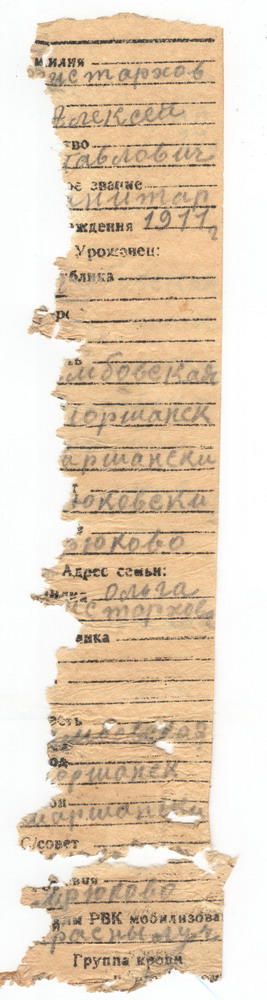 милия
истархов
Алексей
тво
Павлович
ое звание
санитар
ждения 1911 г
Урожонец:
блика
ро
ть
мбовская
Моршанск
аршански
рюковски
рюково
Адрес семьи:
милия Ольга
истархов
лика
асть
мбовская
од
оршанск
он
маршански
С/совет
вня
мрюково
им РВК мобилизова
расны луч
Группа крови